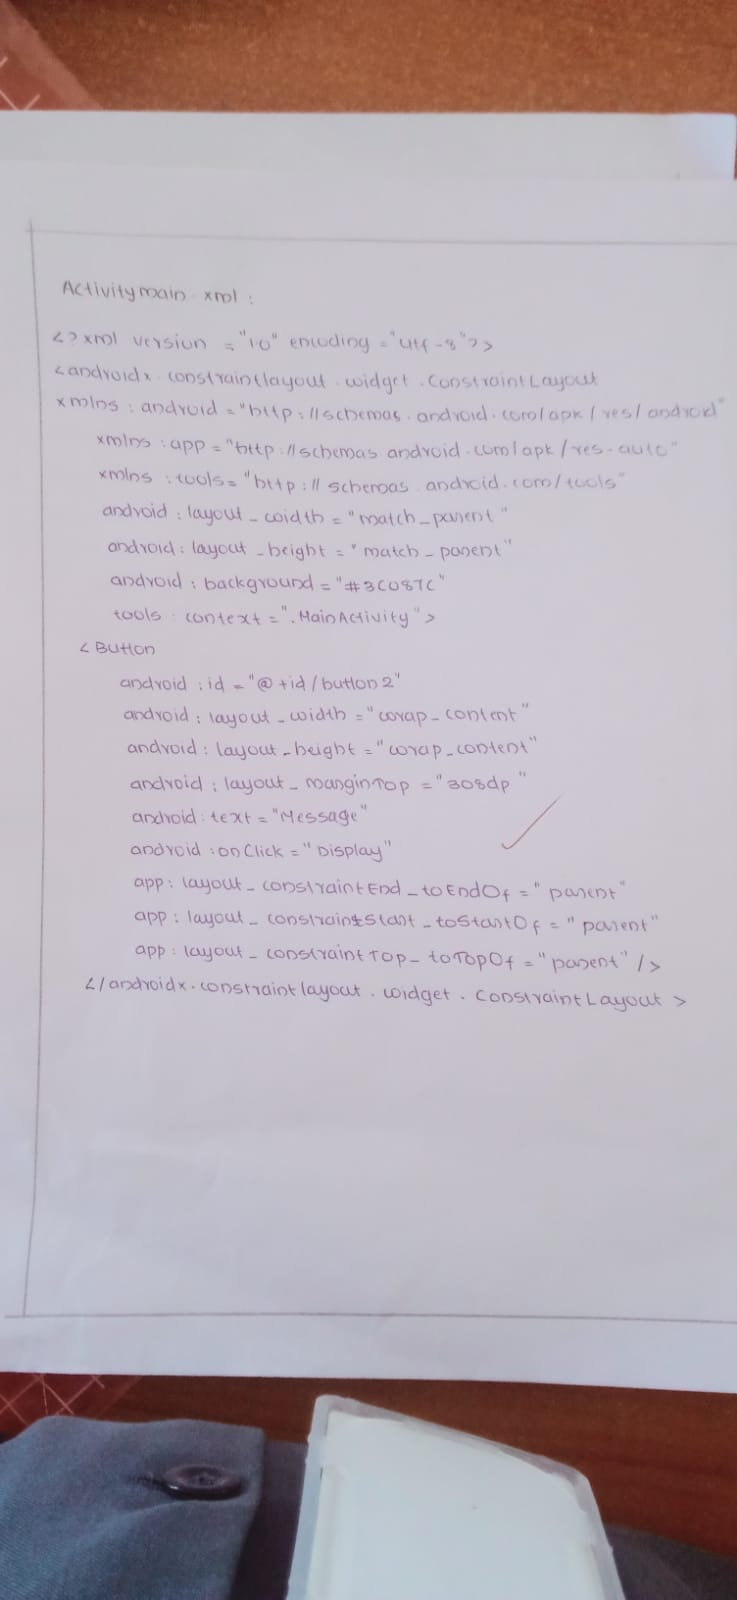 Activitymain xml :
<?xml version = "1.0" encoding = "utf-8"?>
<androidx.constraintlayout.widget.ConstraintLayout
xmlns : android = "http://schemas.android.com/apk/res/android"
xmlns : app = "http://schemas.android.com/apk/res-auto"
xmlns : tools = "http://schemas.android.com/tools"
android : layout_width = "match_parent"
android : layout_height = "match_parent"
android : background = "#3C087C"
tools : context = ".MainActivity">
<Button
android : id = "@+id/button2"
android : layout_width = "wrap_content"
android : layout_height = "wrap_content"
android : layout_marginTop = "308dp"
android : text = "Message"
android : onClick = "Display"
app : layout_constraintEnd_toEndOf = "parent"
app : layout_constraintStart_toStartOf = "parent"
app : layout_constraintTop_toTopOf = "parent" />
</androidx.constraintlayout.widget.ConstraintLayout>